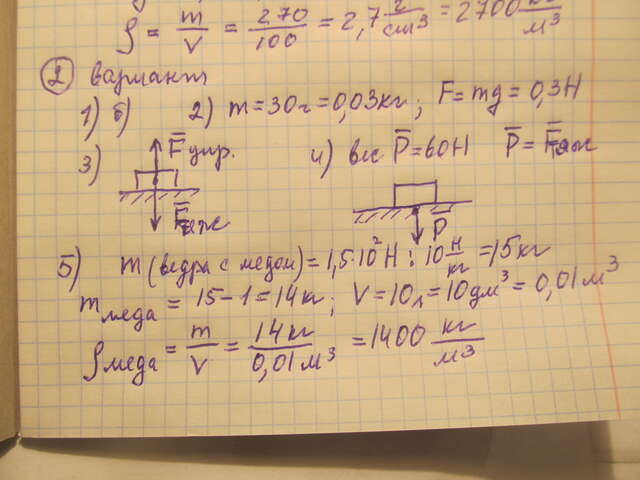 ρ = m/V = 270/100 = 2,7 г/см³ = 2700 кг/м³
② вариант
1) б) 2) m = 30г = 0,03кг; F = mg = 0,3Н
3) F̅упр. 4) вес P̅ = 60Н P̅ = F̅тяж
F̅тяж P̅
5) m (ведра с медом) = 1,5·10²Н : 10 Н/кг = 15кг
mмеда = 15 - 1 = 14кг; V = 10л = 10дм³ = 0,01м³
ρмеда = m/V = 14кг/0,01м³ = 1400 кг/м³